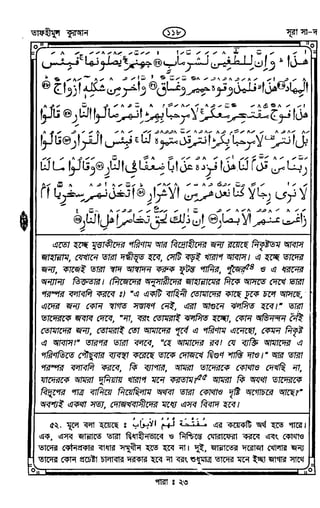 তাফহীমুল কুরআন
১১৮
সূরা সা-দ
هٰذَا ۚ وَإِنَّ لِلطّٰغِينَ لَشَرَّ مَاٰبٍ ۝ جَهَنَّمَ ۚ يَصْلَوْنَهَا ۚ فَبِئْسَ
الْمِهَادُ ۝ هٰذَا ۙ فَلْيَذُوقُوهُ حَمِيمٌ وَّغَسَّاقٌ ۝ وَّاٰخَرُ مِنْ شَكْلِهٖٓ أَزْوَاجٌ ۝
هٰذَا فَوْجٌ مُّقْتَحِمٌ مَّعَكُمْ ۚ لَا مَرْحَبًۢا بِهِمْ ۚ إِنَّهُمْ صَالُوا النَّارِ ۝ قَالُوا
بَلْ أَنْتُمْ لَا مَرْحَبًۢا بِكُمْ ۚ أَنْتُمْ قَدَّمْتُمُوهُ لَنَا ۚ فَبِئْسَ الْقَرَارُ ۝ قَالُوا
رَبَّنَا مَنْ قَدَّمَ لَنَا هٰذَا فَزِدْهُ عَذَابًا ضِعْفًا فِي النَّارِ ۝ وَقَالُوا مَا لَنَا
لَا نَرٰى رِجَالًا كُنَّا نَعُدُّهُمْ مِّنَ الْأَشْرَارِ ۝ أَتَّخَذْنٰهُمْ سِخْرِيًّا أَمْ
زَاغَتْ عَنْهُمُ الْأَبْصَارُ ۝ إِنَّ ذٰلِكَ لَحَقٌّ تَخَاصُمُ أَهْلِ النَّارِ ۝
এতো হচ্ছে মুত্তাকীদের পরিণাম আর বিদ্রোহীদের জন্য রয়েছে নিকৃষ্টতম আবাস
জাহান্নাম, যেখানে তারা দগ্ধীভূত হবে, সেটি বড়ই খারাপ আবাস। এ হচ্ছে তাদের
জন্য, কাজেই তারা স্বাদ আস্বাদন করুক ফুটন্ত পানির, পুঁজের ও এ ধরনের
অন্যান্য তিক্ততার। (নিজেদের অনুসারীদের জাহান্নামের দিকে আসতে দেখে তারা
পরস্পর বলাবলি করবে ঃ) "এ একটি বাহিনী তোমাদের কাছে ঢুকে চলে আসছে,
এদের জন্য কোন স্বাগত সম্ভাষণ নেই, এরা আগুনে ঝলসিত হবে।" তারা
তাদেরকে জবাব দেবে, "না, বরং তোমরাই ঝলসিত হচ্ছো, কোন অভিনন্দন নেই
তোমাদের জন্য, তোমরাই তো আমাদের পূর্বে এ পরিণাম এনেছো, কেমন নিকৃষ্ট
এ আবাস!" তারপর তারা বলবে, "হে আমাদের রব! যে ব্যক্তি আমাদের এ
পরিণতিতে পৌঁছুবার ব্যবস্থা করেছে তাকে দোজখে দ্বিগুণ শাস্তি দাও।" আর তারা
পরস্পর বলাবলি করবে, কি ব্যাপার, আমরা তাদেরকে কোথাও দেখছি না,
যাদেরকে আমরা দুনিয়ায় খারাপ মনে করতাম? আমরা কি অযথা তাদেরকে
বিদ্রূপের পাত্র বানিয়ে নিয়েছিলাম অথবা তারা কোথাও দৃষ্টি অগোচরে আছে?"
অবশ্যই একথা সত্য, দোজখবাসীদের মধ্যে এসব বিবাদ হবে।
৫২. মূলে বলা হয়েছে ঃ مُفَتَّحَةً لَّهُمُ الْأَبْوَابُ এর কয়েকটি অর্থ হতে পারে।
এক, এসব জান্নাতে তারা দ্বিধাহীনভাবে ও নিশ্চিন্তে ঘোরাফেরা করবে এবং কোথাও
তাদের কোনপ্রকার বাধার সম্মুখীন হতে হবে না। দুই, জান্নাতের দরোজা খোলার জন্য
তাদের কোন প্রচেষ্টা চালাবার দরকার হবে না বরং শুধুমাত্র তাদের মনে ইচ্ছা জাগার সাথে
পারা ঃ ২৩